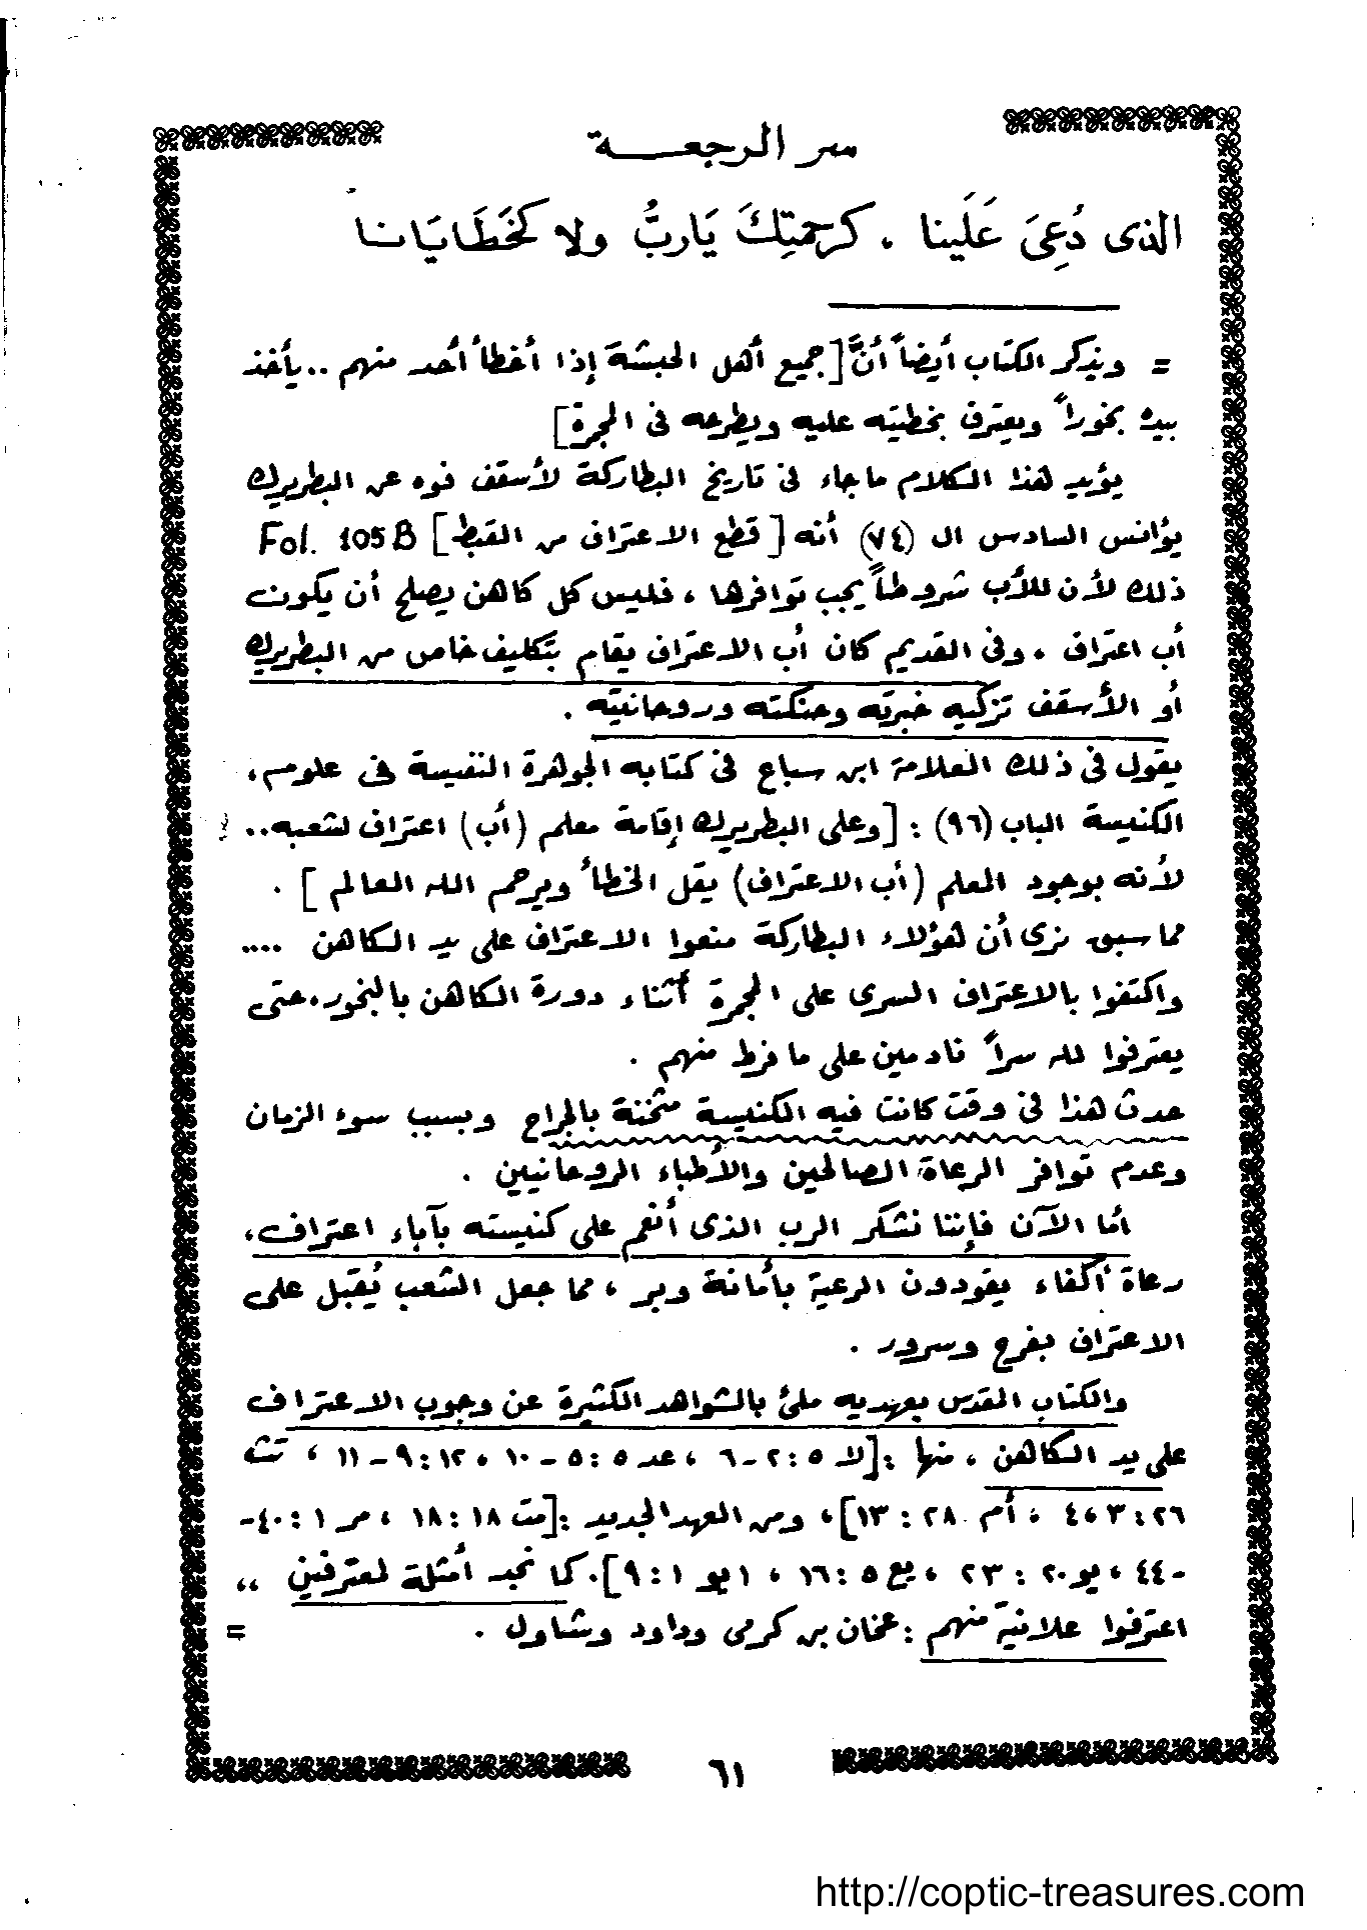 سر الرجعـــة
الذى دُعِىَ عَلَينا ، كرحمتِكَ يَاربُّ ولا كَخَطَايَانا
= ويذكر الكتاب أيضاً أنَّ [جميع أهل الحبشة إذا أخطأ أحد منهم .. يأخذ
بيده بخوراً ويعترف بخطيته عليه ويطرحه فى المجمرة]
يؤيد هذا الكلام ماجاء فى تاريخ البطاركة لأسقف فوه عن البطريرك
يؤانس السادس ال (٧٤) أنه [قطع الاعتراف من القبط] Fol. 105B
ذلك لأن للأب شروطاً يجب توافرها ، فليس كل كاهن يصلح أن يكون
أب اعتراف . وفى القديم كان أب الاعتراف يقام بتكليف خاص من البطريرك
أو الأسقف تزكيه خبرته وحنكته وروحانيته .
يقول فى ذلك العلامة ابن سباع فى كتابه الجوهرة النفيسة فى علوم،
الكنيسة الباب (٩٦) : [وعلى البطريرك إقامة معلم (أب) اعتراف لشعبه..
لأنه بوجود المعلم (أب الاعتراف) يقل الخطأ ويرحم الله العالم ] .
مما سبق نرى أن هؤلاء البطاركة منعوا الاعتراف على يد الكاهن ....
واكتفوا بالاعتراف السرى على المجمرة أثناء دورة الكاهن بالبخور، حتى
يعترفوا لله سراً نادمين على ما فرط منهم .
حدث هذا فى وقت كانت فيه الكنيسة مثخنة بالجراح وبسبب سوء الزمان
وعدم توافر الرعاة الصالحين والأطباء الروحانيين .
أما الآن فإننا نشكر الرب الذى أنعم على كنيسته بآباء اعتراف،
رعاة أكفاء يقودون الرعية بأمانة وبر ، مما جعل الشعب يُقبل على
الاعتراف بفرح وسرور .
والكتاب المقدس بعهديه ملئ بالشواهد الكثيرة عن وجوب الاعتراف
على يد الكاهن ، منها : [لا ٥ : ٢ - ٦ ، عد ٥ : ٥ - ١٠ ، ١٢ : ٩ - ١١ ، تث
٢٦ : ٣ ، ٤ ، أم ٢٨ : ١٣] ، ومن العهد الجديد : [مت ١٨ : ١٨ ، مر ١ : ٤٠ -
- ٤٤ ، يو ٢٠ : ٢٣ ، يع ٥ : ١٦ ، ١يو ١ : ٩] . كما نجد أمثلة لمعترفين ،،
اعترفوا علانية منهم : عخان بن كرمى وداود وشاول . =
٦١
http://coptic-treasures.com